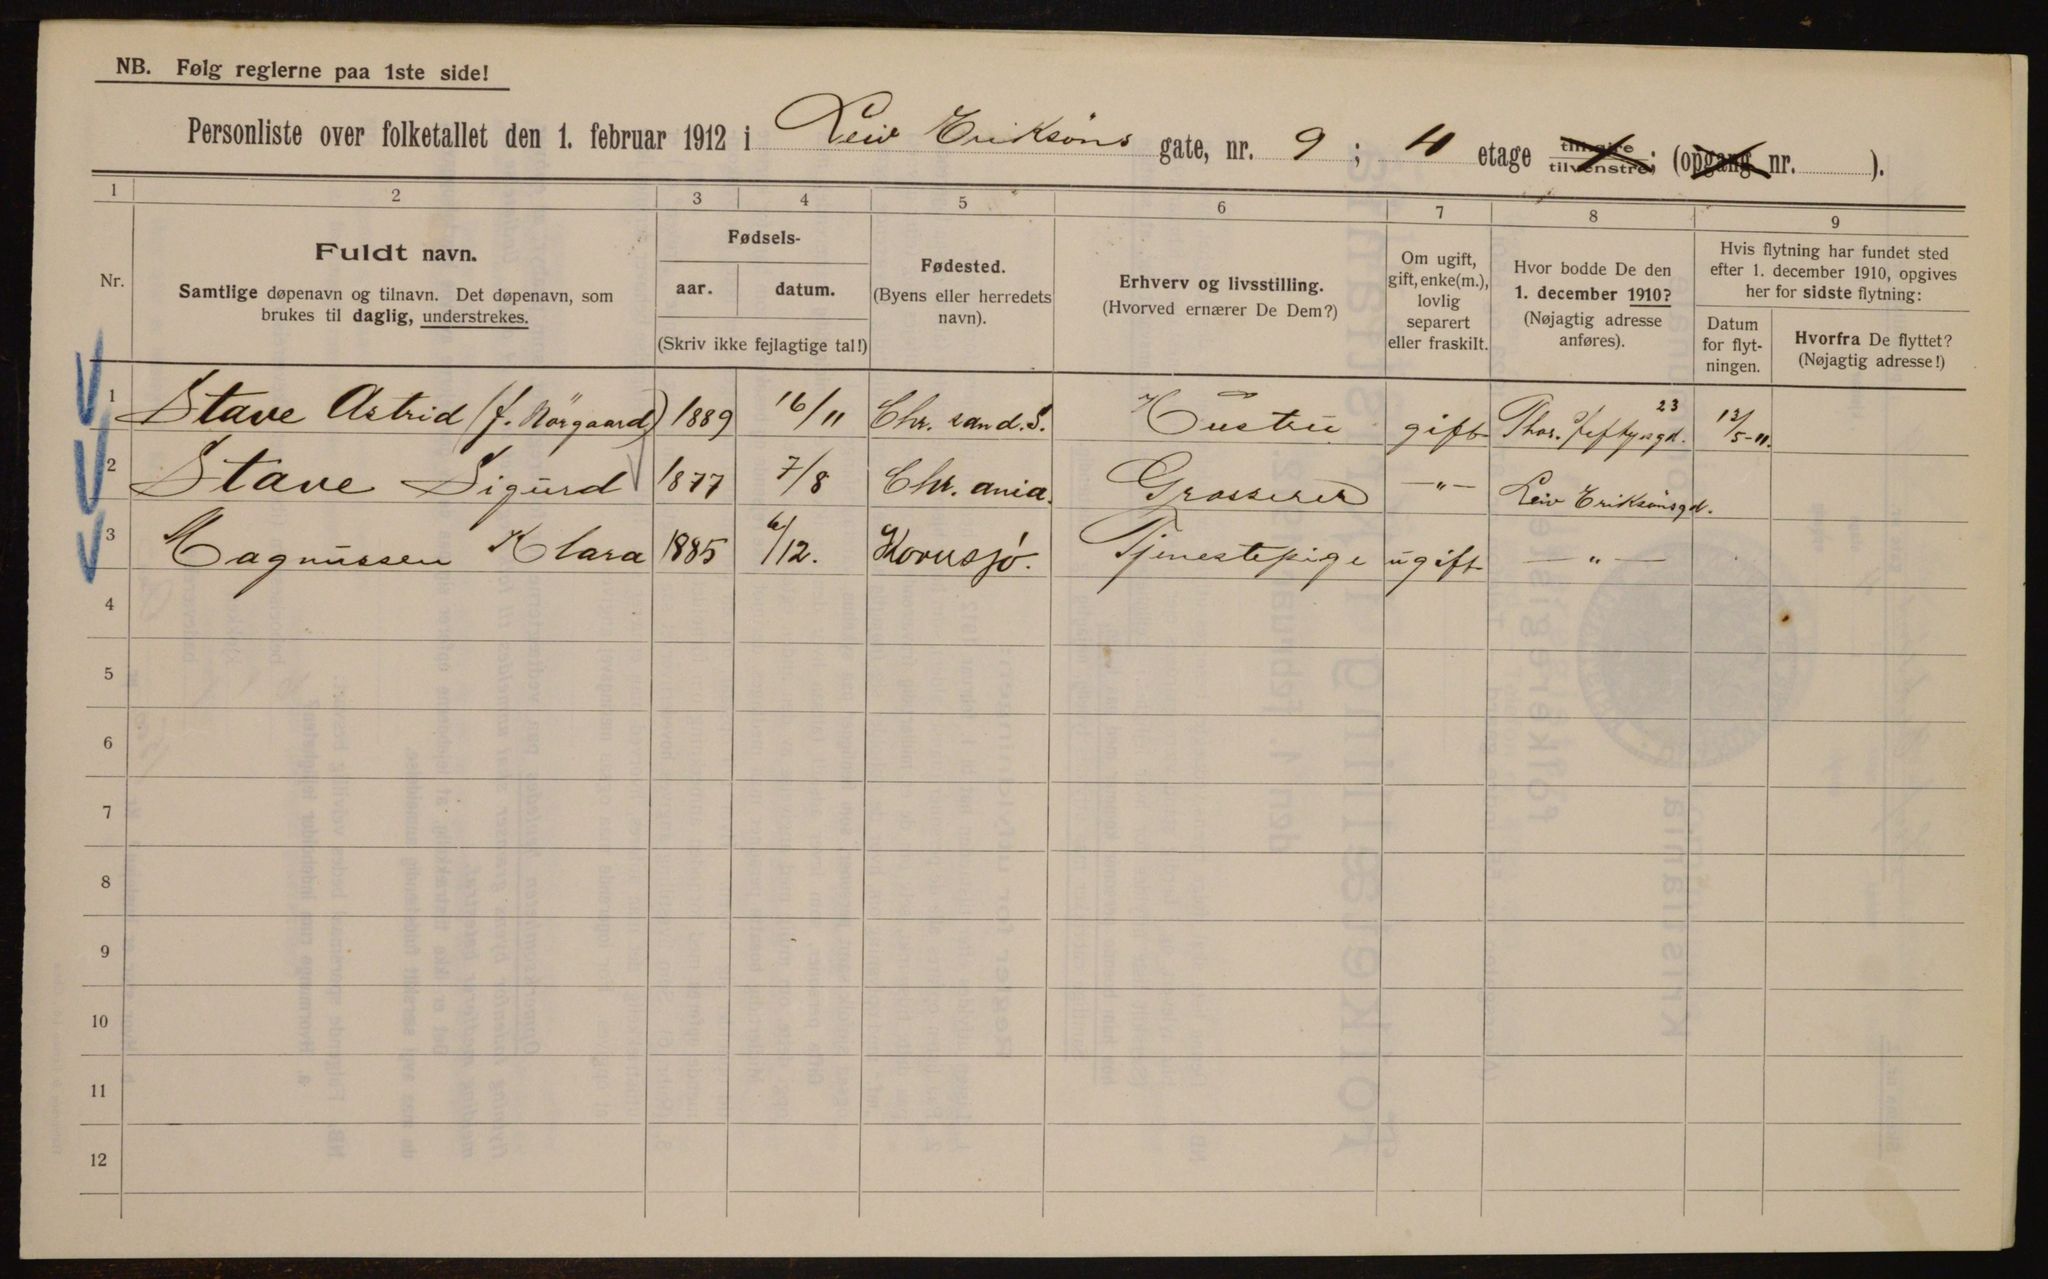 NB. Følg reglerne paa 1ste side!
Personliste over folketallet den 1. februar 1912 i Leiv Eriksøns gate, nr. 9 ; 4 etage tilhøire tilvenstre; (opgang nr. ).
1 2 3 4 5 6 7 8 9
Nr.
Fuldt navn.
Samtlige døpenavn og tilnavn. Det døpenavn, som
brukes til daglig, understrekes.
Fødsels-
aar. datum.
(Skriv ikke fejlagtige tal!)
Fødested.
(Byens eller herredets
navn).
Erhverv og livsstilling.
(Hvorved ernærer De Dem?)
Om ugift,
gift, enke(m.),
lovlig
separert
eller fraskilt.
Hvor bodde De den
1. december 1910?
(Nøjagtig adresse
anføres).
Hvis flytning har fundet sted
efter 1. december 1910, opgives
her for sidste flytning:
Datum
for flyt-
ningen.
Hvorfra De flyttet?
(Nøjagtig adresse!)
1 Stave Astrid (f. Nörgaard) 1889 16/11 Chr. sand. S. Hustru gift Thor. Jeftysgd. 23 13/5-11.
2 Stave Sigurd 1877 7/8 Chr. ania. Grosserer —"— Leiv Eriksönsgd.
3 Magnussen Klara 1885 6/12. Kornsjø. Tjenestepige ugift —"—
4
5
6
7
8
9
10
11
12